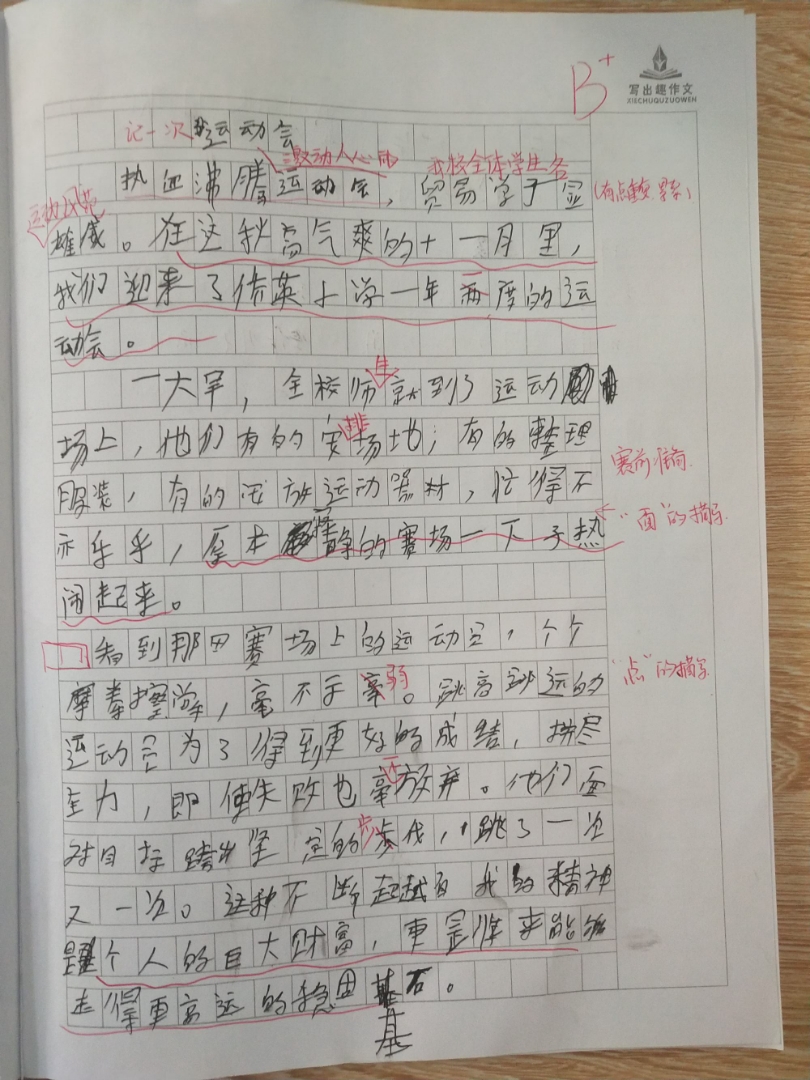 写出趣作文
XIECHUQUZUOWEN
B+
记一次运动会
激动人心的
我校全体学生各
热血沸腾运动会,贸易学子显
运动风范
雄威。在这秋高气爽的十一月里,
我们迎来了倍英小学一年两度的运
一
动会。
一大早,全校师就到了运动
生
场上,他们有的安场地;有的整理
排
服装,有的摆放运动器材,忙得不
赛前准备
亦乐乎,原本静的赛场一下子热
"面"的描写
闹起来。
看到那田赛场上的运动员,个个
摩拳擦掌,毫不示毫。跳高跳远的
弱
"点"的描写
运动员为了得到更好的成绩,拼尽
全力,即使失败也毫放弃。他们面
对目标跨出坚定的步伐,跳了一次
步
又一次。这种不断超越自我的精神
是个人的巨大财富,更是将来能够
走得更高远的稳固基石。
基